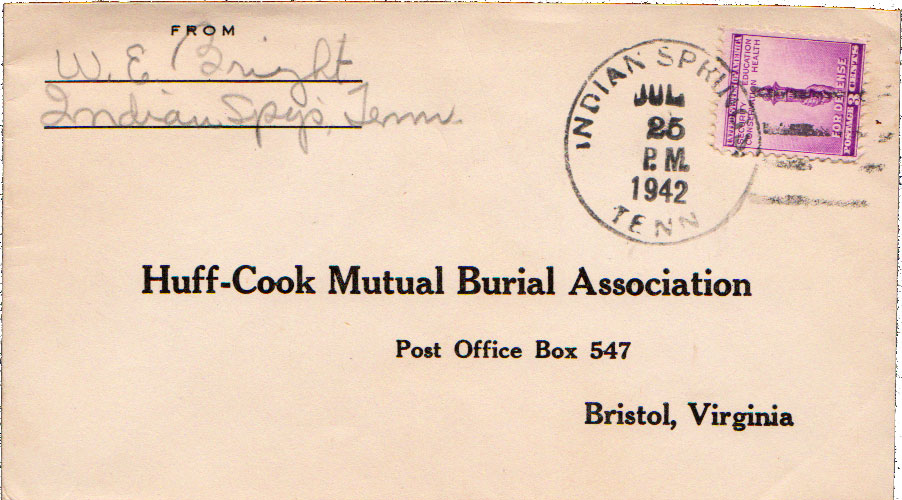 FROM
W. E. Bright
Indian Spgs, Tenn.
INDIAN SPRIN
JUL
25
P.M.
1942
TENN
UNITED STATES OF AMERICA
SECURITY EDUCATION
CONSERVATION HEALTH
FOR DEFENSE
POSTAGE 3 CENTS
Huff-Cook Mutual Burial Association
Post Office Box 547
Bristol, Virginia